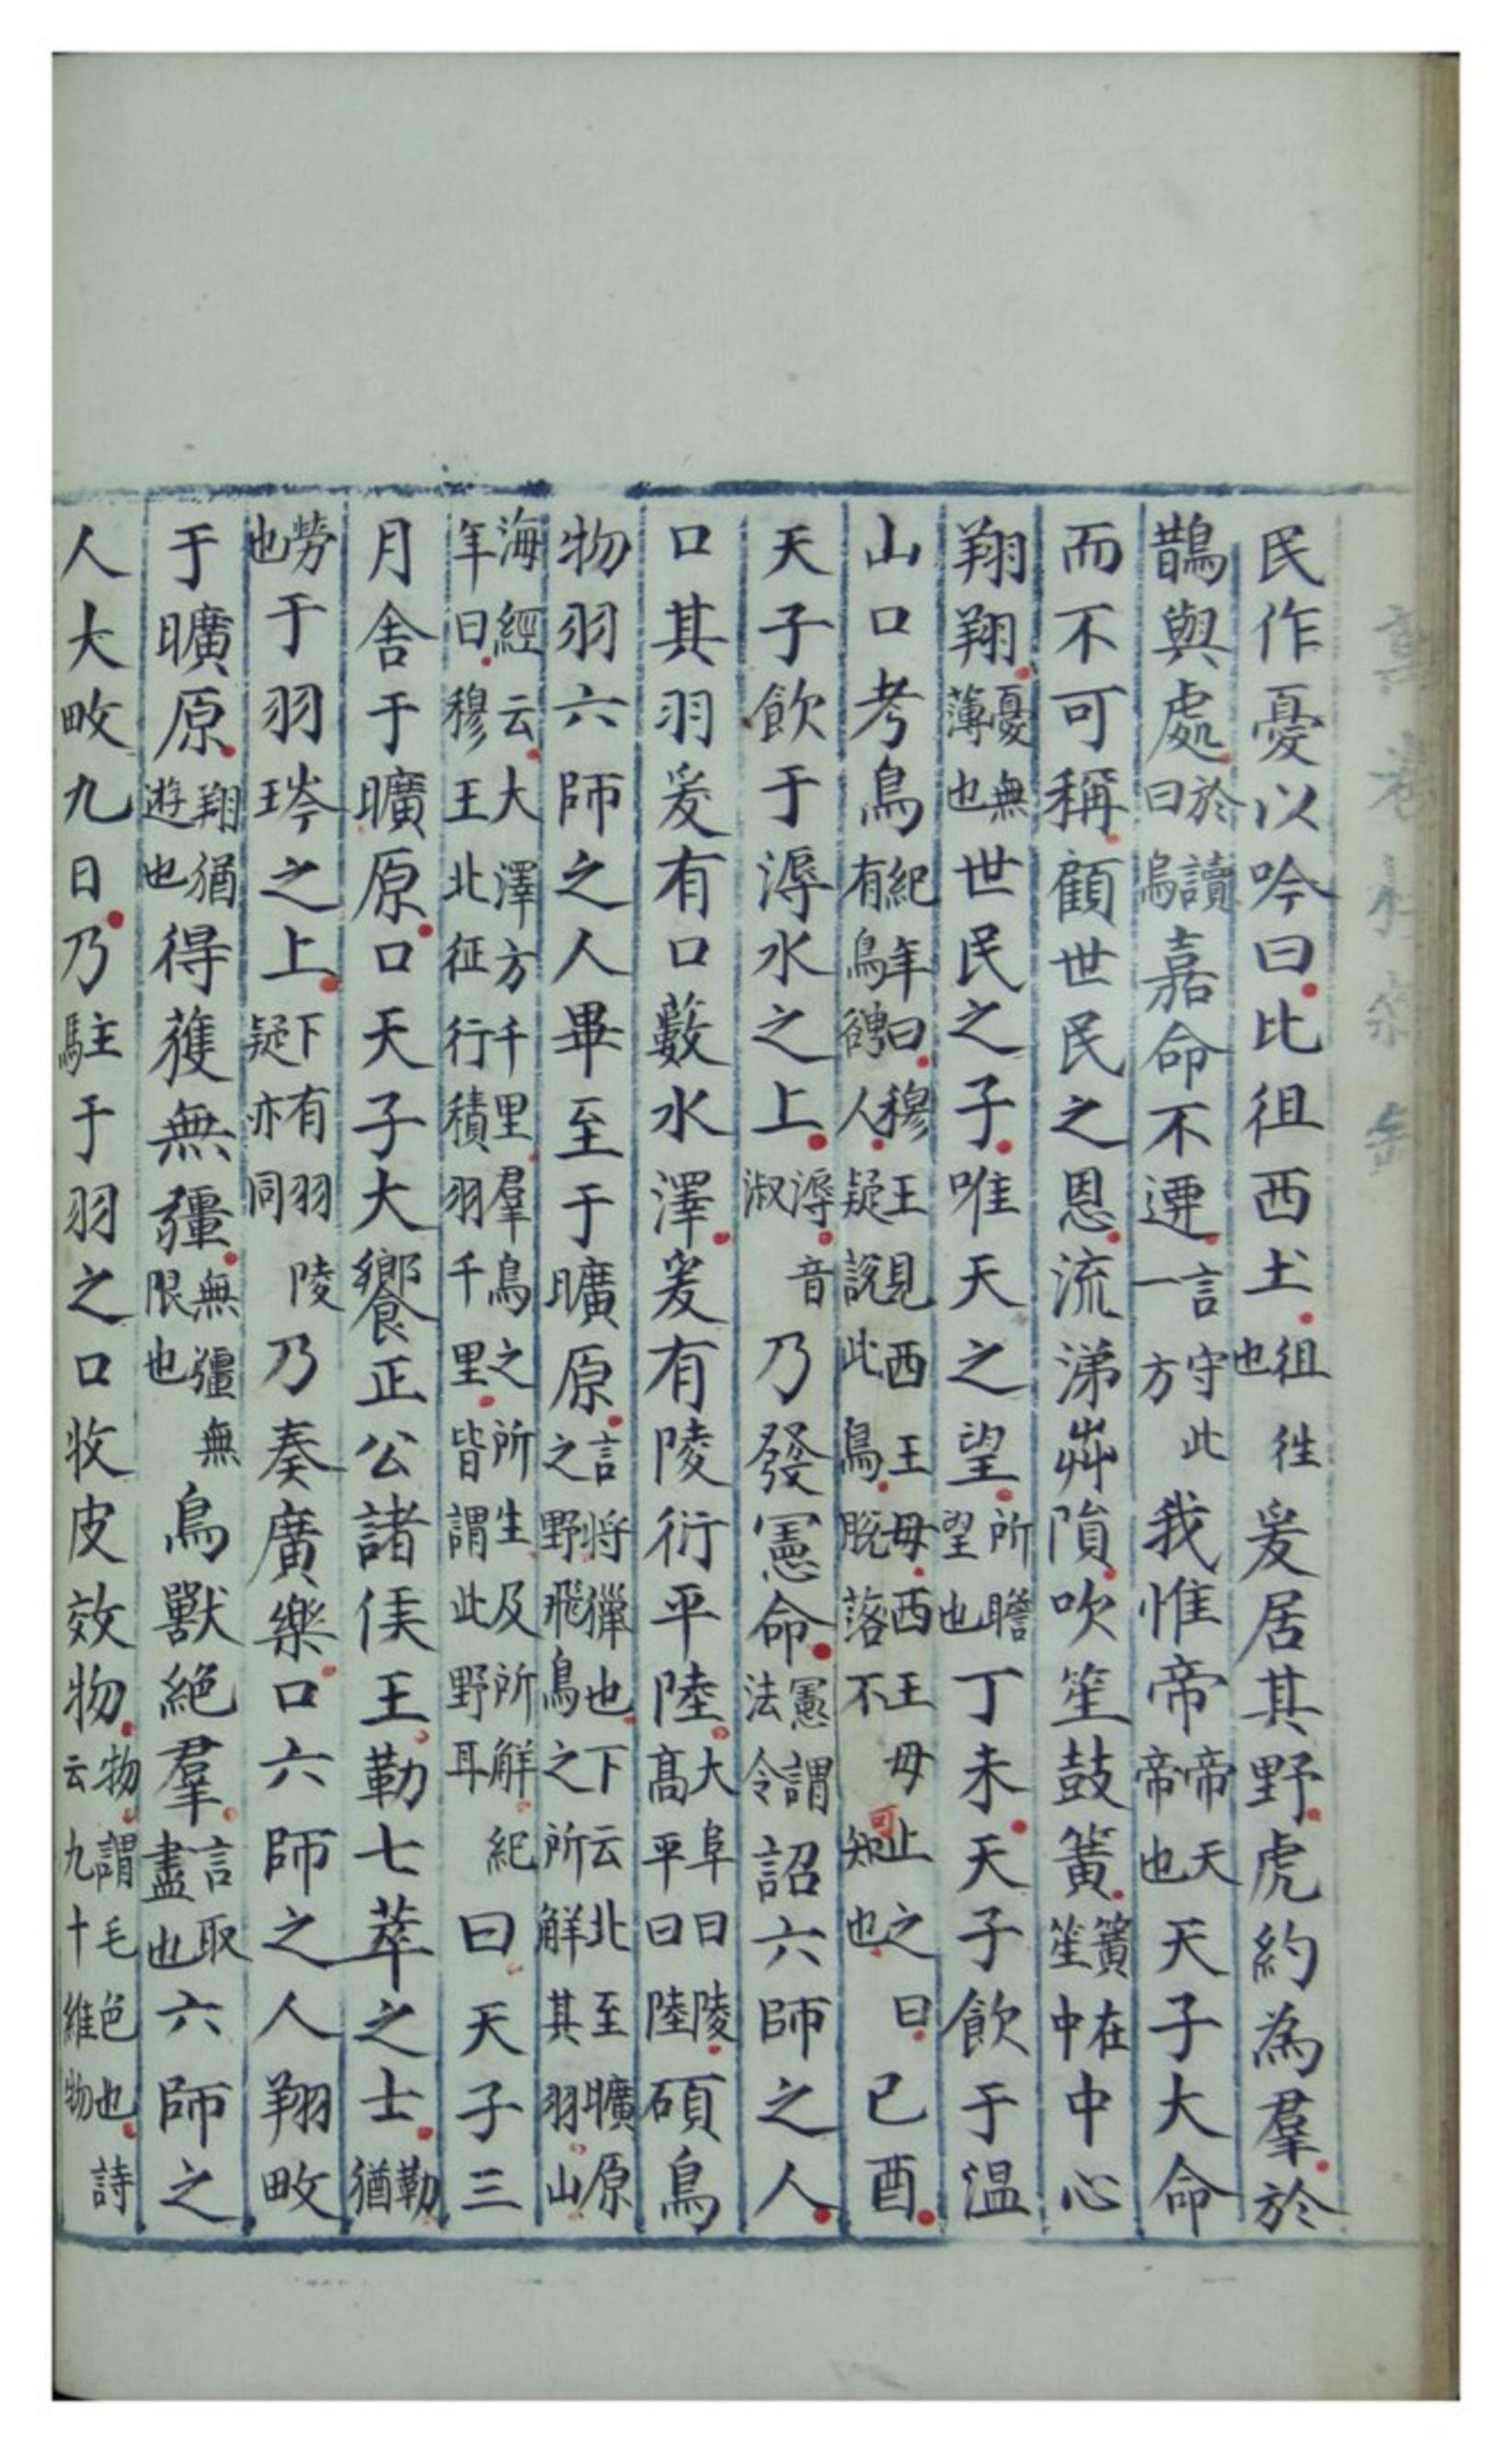 民作憂以吟曰比徂西土徂往也爰居其野虎約為羣於
鵲與處於讀曰烏嘉命不遷言守此一方我惟帝帝天帝也天子大命
而不可稱顧世民之恩流涕芔隕吹笙鼓簧簧在笙中中心
翔翔憂無薄也世民之子唯天之望所瞻望也丁未天子飲于温
山口考鳥紀年曰穆王見西王母西王母止之曰有鳥人疑說此鳥脫落不可知也己酉
天子飲于溽水之上溽音淑乃發憲命憲謂法令詔六師之人
口其羽爰有口藪水澤爰有陵衍平陸大阜曰陵高平曰陸碩鳥
物羽六師之人畢至于曠原言將獵也下云北至曠原之野飛鳥之所解其羽山
海經云大澤方千里羣鳥之所生及所解紀年曰穆王北征行積羽千里皆謂此野耳曰天子三
月舍于曠原口天子大饗正公諸侯王勒七萃之士勒猶
勞也于羽琌之上下有羽陵疑亦同乃奏廣樂口六師之人翔畋
于曠原翔猶遊也得獲無疆無疆無限也鳥獸絕羣言取盡也六師之
人大畋九日乃駐于羽之口收皮效物物謂毛色也詩云九十維物